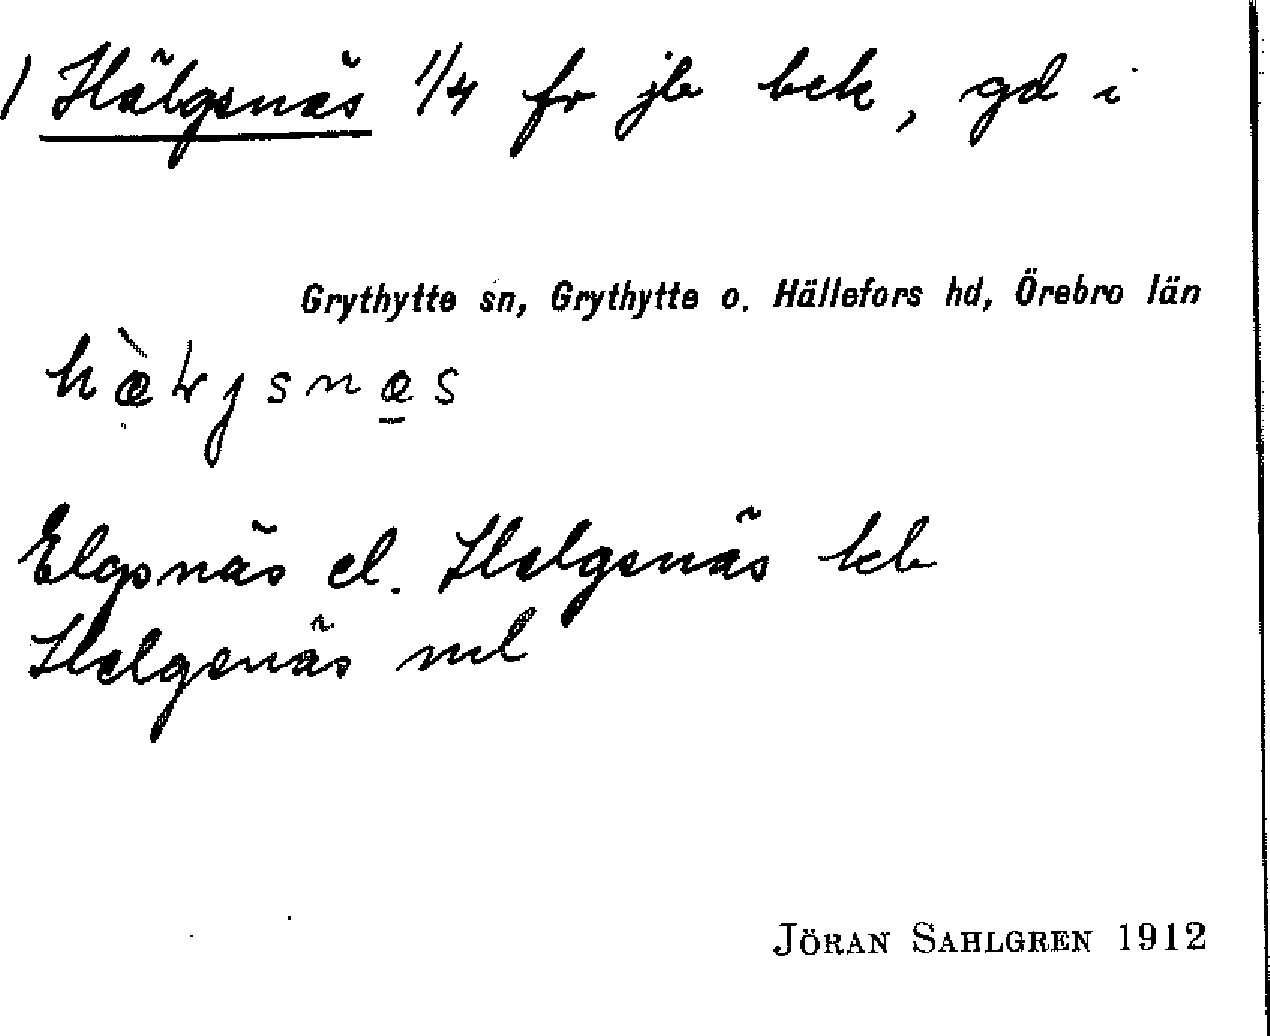 1 Hälgsnäs 1/4 fr jb bek, gd i
Grythytte sn, Grythytte o. Hällefors hd, Örebro län
hæ̀ɫjsnæ̱s
Elgsnäs el. Helgsnäs keb
Helgsnäs ml
JÖRAN SAHLGREN 1912